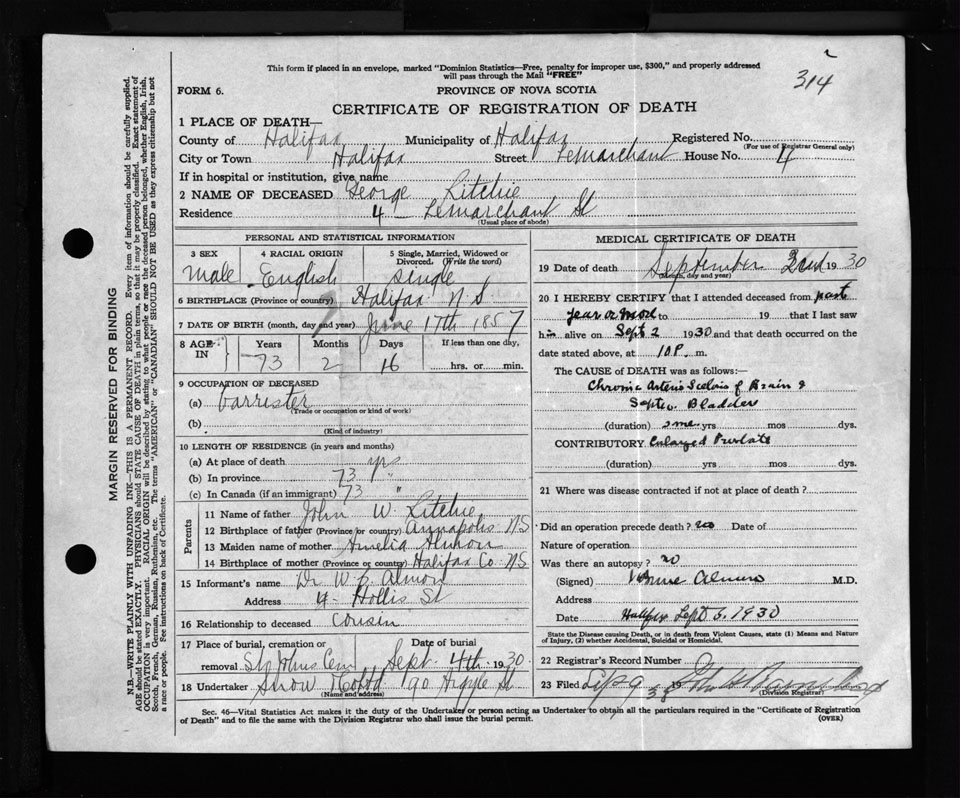 This form if placed in an envelope, marked "Dominion Statistics—Free, penalty for improper use, $300," and properly addressed
will pass through the Mail "FREE"
314
FORM 6.
PROVINCE OF NOVA SCOTIA
CERTIFICATE OF REGISTRATION OF DEATH
1 PLACE OF DEATH—
County of Halifax Municipality of Halifax Registered No.
(For use of Registrar General only)
City or Town Halifax Street Lemarchant House No. 4
If in hospital or institution, give name
2 NAME OF DECEASED George Ritchie
Residence 4 Lemarchant St
(Usual place of abode)
PERSONAL AND STATISTICAL INFORMATION
3 SEX 4 RACIAL ORIGIN 5 Single, Married, Widowed or Divorced. (Write the word)
Male English Single
6 BIRTHPLACE (Province or country) Halifax N S
7 DATE OF BIRTH (month, day and year) June 17th 1857
8 AGE IN Years Months Days If less than one day,
73 2 16 hrs. or min.
9 OCCUPATION OF DECEASED
(a) barrister
(Trade or occupation or kind of work)
(b)
(Kind of industry)
10 LENGTH OF RESIDENCE (in years and months)
(a) At place of death yrs
(b) In province 73 "
(c) In Canada (if an immigrant) 73 "
Parents
11 Name of father John W. Ritchie
12 Birthplace of father (Province or country) Annapolis NS
13 Maiden name of mother Amelia Almon
14 Birthplace of mother (Province or country) Halifax Co NS
15 Informant's name Dr. W. B. Almon
Address 4 Hollis St
16 Relationship to deceased Cousin
17 Place of burial, cremation or removal St Johns Cem Date of burial Sept. 4th 1930
18 Undertaker Snow & Co Ltd 90 Argyle St
(Name and address)
MEDICAL CERTIFICATE OF DEATH
19 Date of death September 2nd 1930
(Month, day and year)
20 I HEREBY CERTIFY that I attended deceased from past
year or more to 19 that I last saw
him alive on Sept 2 1930 and that death occurred on the
date stated above, at 10 P. m.
The CAUSE of DEATH was as follows:—
Chronic Arterio Sclerosis of Brain &
Septic Bladder
(duration) yrs mos dys.
CONTRIBUTORY Enlarged Prostate
(duration) yrs mos dys.
21 Where was disease contracted if not at place of death?
Did an operation precede death? no Date of
Nature of operation
Was there an autopsy? no
(Signed) Almon M.D.
Address
Date Halifax Sept 6. 1930
State the Disease causing Death, or in death from Violent Causes, state (1) Means and Nature
of Injury, (2) whether Accidental, Suicidal or Homicidal.
22 Registrar's Record Number
23 Filed Sep 9 1930 John
(Division Registrar)
Sec. 46—Vital Statistics Act makes it the duty of the Undertaker or person acting as Undertaker to obtain all the particulars required in the "Certificate of Registration
of Death" and to file the same with the Division Registrar who shall issue the burial permit.
(OVER)
MARGIN RESERVED FOR BINDING
N.B.—WRITE PLAINLY WITH UNFADING INK—THIS IS A PERMANENT RECORD. Every item of information should be carefully supplied.
AGE should be stated EXACTLY. PHYSICIANS should STATE CAUSE OF DEATH in plain terms, so that it may be properly classified. Exact statement of
OCCUPATION is very important. RACIAL ORIGIN will be described by stating to what people or race the deceased person belonged, whether English, Irish,
Scotch, French, German, Russian, Ruthenian, etc. The terms "AMERICAN" or "CANADIAN" SHOULD NOT BE USED as they express citizenship but not
a race or people. See instructions on back of Certificate.